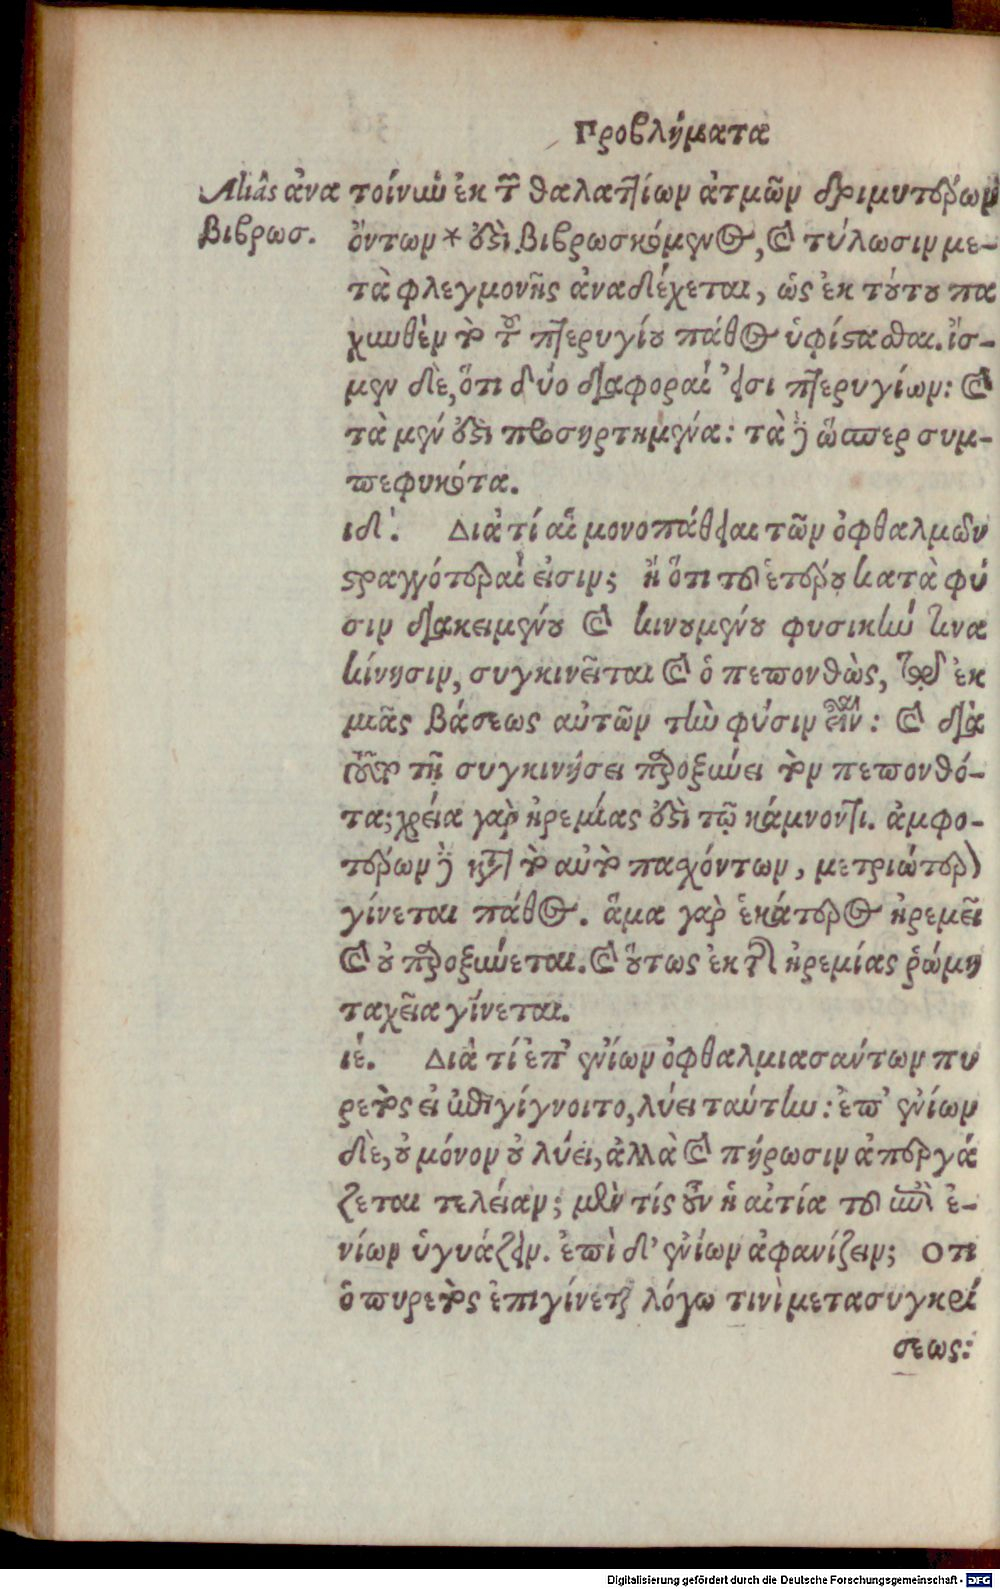 Προβλήματα
Aliâs ἀνα
βιβρωσ.
τοίνυν ἐκ τῶν θαλαττίων ἀτμῶν δριμυτέρων
ὄντων * ἐστὶ βιβρωσκόμενος, καὶ τύλωσιν με-
τὰ φλεγμονῆς ἀναδέχεται, ὡς ἐκ τούτου πα
χυνθὲν τὸ τοῦ πτερυγίου πάθος ὑφίστασθαι. ἴσ-
μεν δὲ, ὅτι δύο διαφοραί εἰσι πτερυγίων: καὶ
τὰ μέν ἐστι προσηρτημένα: τὰ δὲ ὥσπερ συμ-
πεφυκότα.
ιδ΄. Διὰ τί αἱ μονοπάθειαι τῶν ὀφθαλμῶν
στραγγότεραί εἰσιν; ἢ ὅτι τοῦ ἑτέρου κατὰ φύ
σιν διακειμένου καὶ κινουμένου φυσικήν τινα
κίνησιν, συγκινεῖται καὶ ὁ πεπονθὼς, ἐκ
μιᾶς βάσεως αὐτῶν τὴν φύσιν εἶναι: καὶ διὰ
τοῦτο τῇ συγκινήσει παροξύνει τὸν πεπονθό-
τα; χρεία γὰρ ἠρεμίας ἐστὶ τῷ κάμνοντι. ἀμφο-
τέρων δὲ κατὰ τὸ αὐτὸ πασχόντων, μετριώτερον
γίνεται πάθος. ἅμα γὰρ ἑκάτερος ἠρεμεῖ
καὶ οὐ παροξύνεται. καὶ οὕτως ἐκ τῆς ἠρεμίας ῥώμη
ταχεῖα γίνεται.
ιέ. Διὰ τί ἐπ' ἐνίων ὀφθαλμιασάντων πυ
ρετὸς εἰ ἐπιγίγνοιτο, λύει ταύτην: ἐπ' ἐνίων
δὲ, οὐ μόνον οὐ λύει, ἀλλὰ καὶ πήρωσιν ἀπεργά
ζεται τελείαν; τίς οὖν ἡ αἰτία τοῦ ἐπὶ ἐ-
νίων ὑγιάζειν. ἐπὶ δ' ἐνίων ἀφανίζειν; Οτι
ὁ πυρετὸς ἐπιγίνεται λόγω τινὶ μετασυγκρί
σεως:
Digitalisierung gefördert durch die Deutsche Forschungsgemeinschaft - DFG